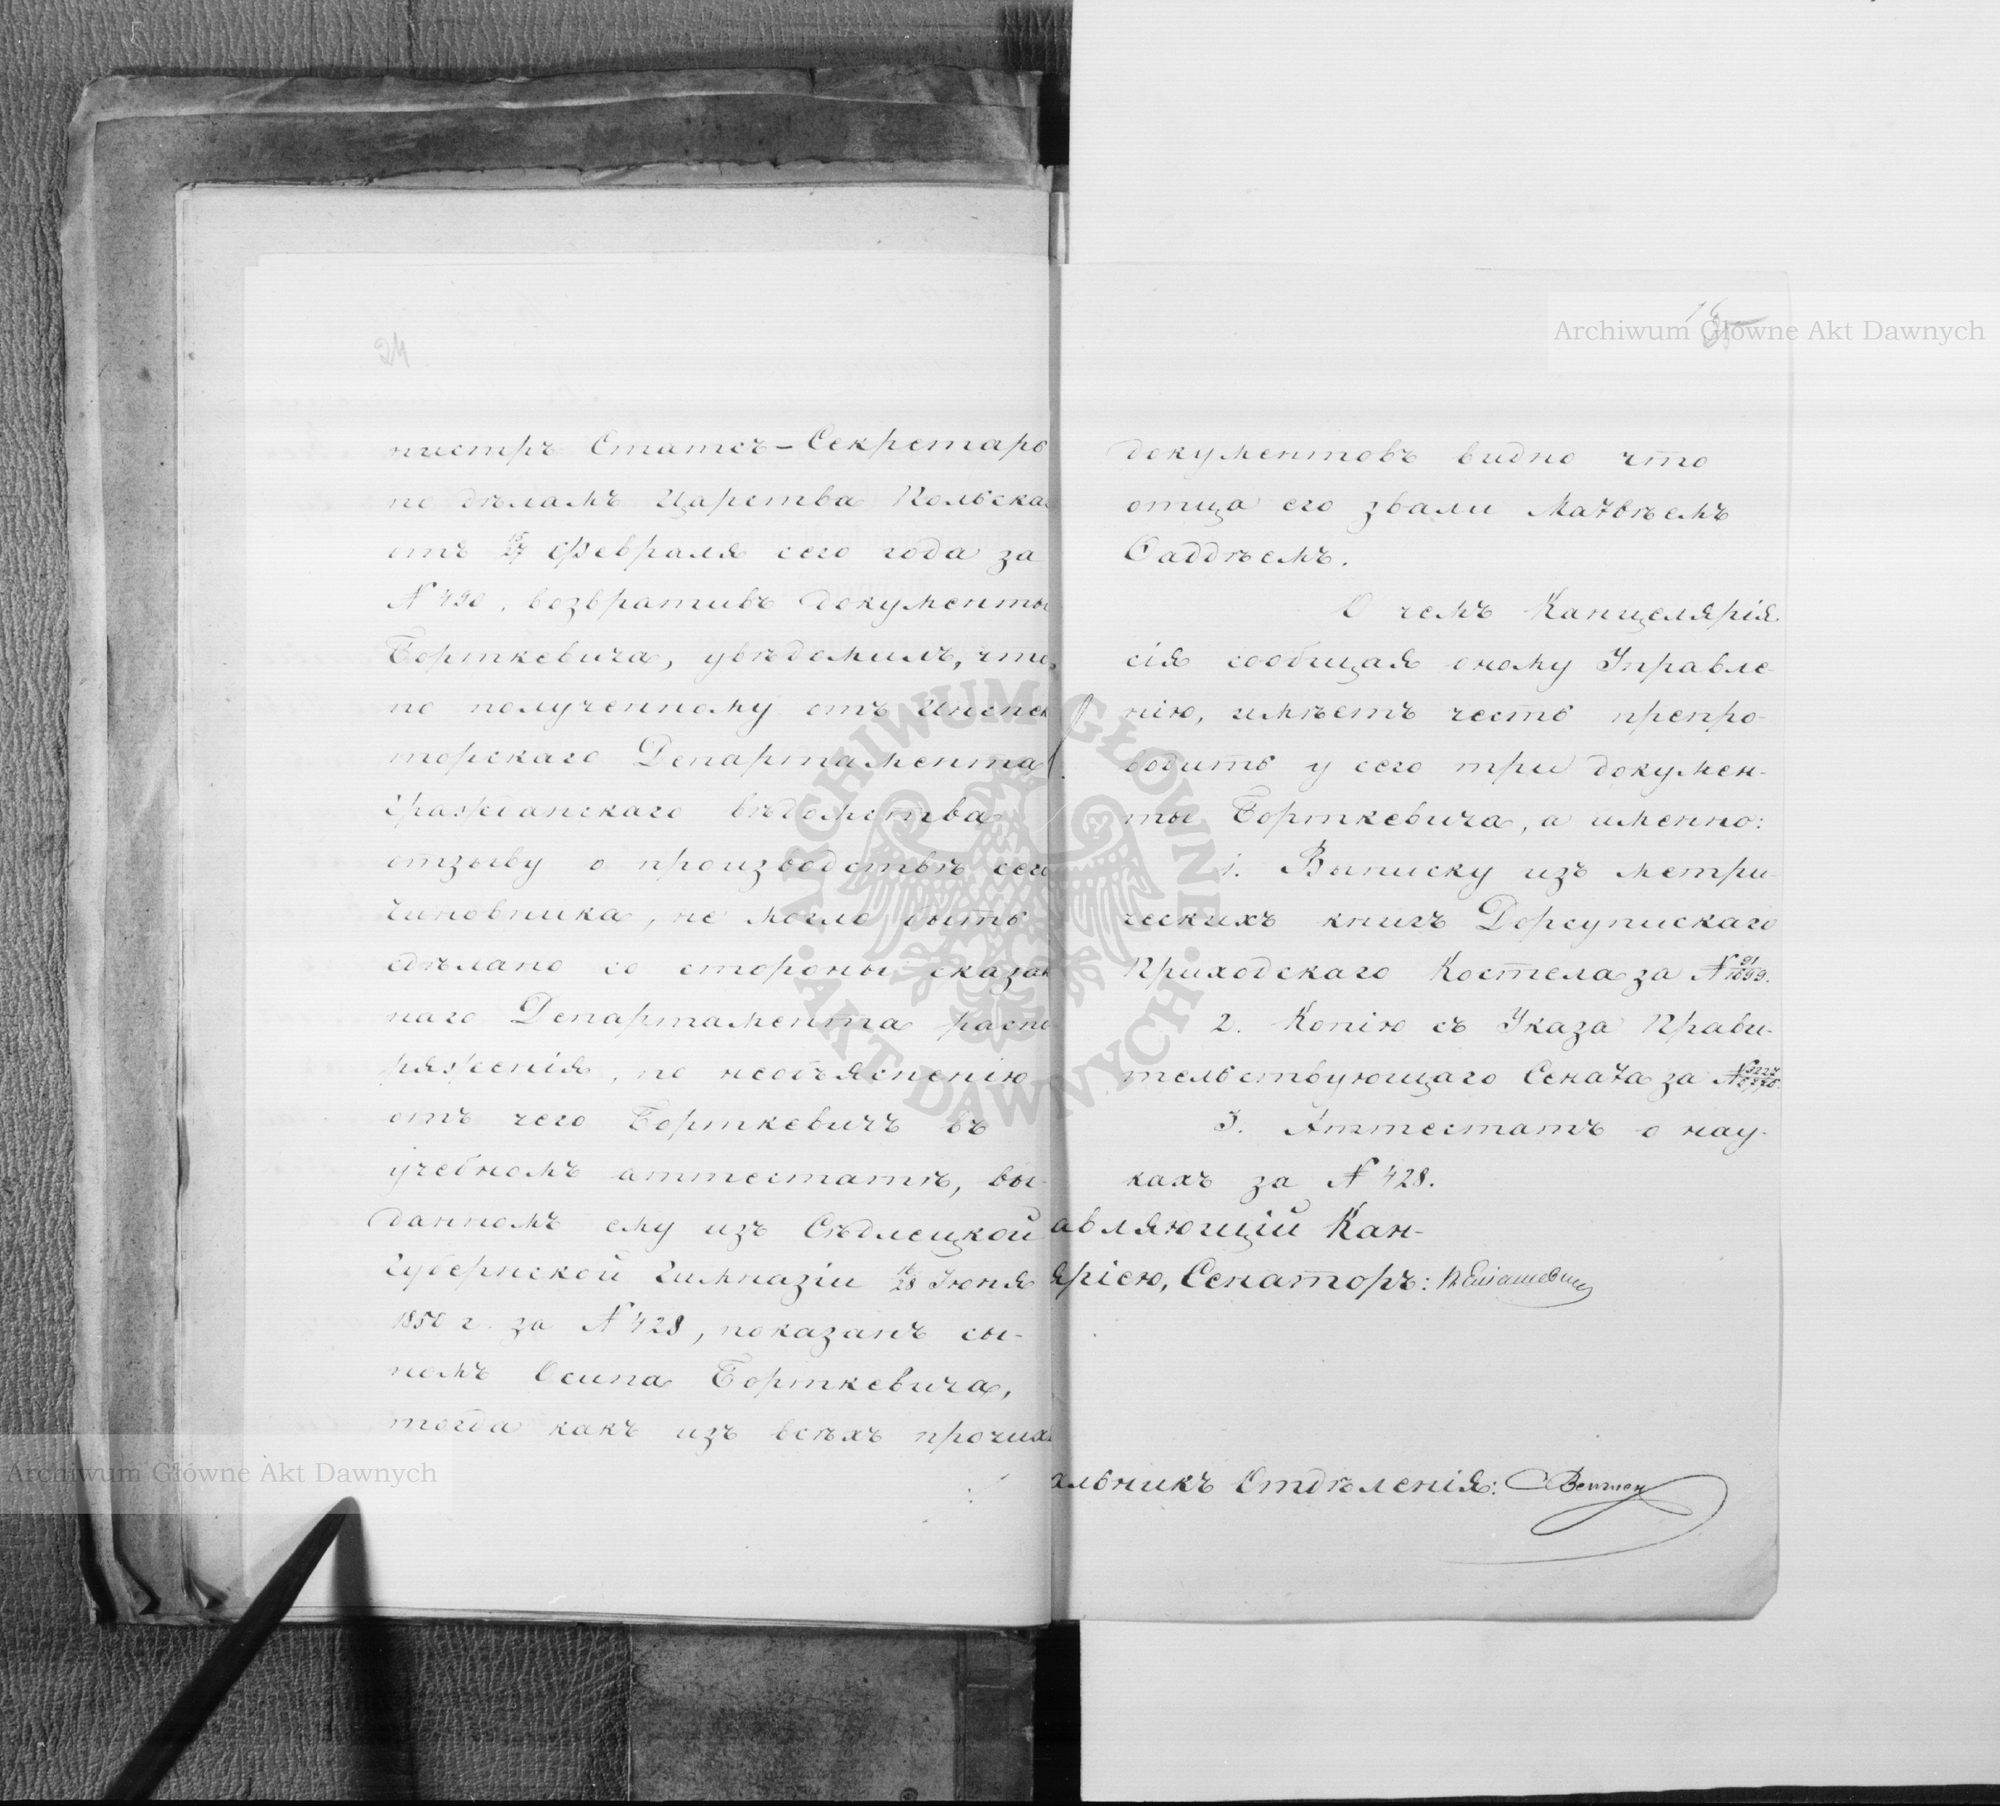 24
нистръ Статсъ-Секретарь
по дѣламъ Царства Польска
отъ 15/27 Февраля сего года за
N 490, возвративъ документы
Борткевича, увѣдомилъ, что
по полученному отъ Инспек
торскаго Департамента
Гражданскаго вѣдомства
отзыву о производствѣ сего
чиновника, не могло быть
сдѣлано со стороны сказан
наго Департамента распо
ряженія, по необъясненію
отъ чего Борткевичъ въ
учебномъ аттестатѣ, вы-
данномъ ему изъ Сѣдлецкой
Губернской Гимназіи 16/28 Іюня
1850 г. за N 428, показанъ сы-
номъ Осипа Борткевича,
тогда какъ изъ всѣхъ прочихъ
документовъ видно что
отца его звали Матвѣемъ
Фаддѣемъ.
О чемъ Канцелярія
сія сообщая оному Управле-
нію, имѣетъ честь препро-
водить у сего три докумен-
ты Борткевича, а именно:
1. Выписку изъ метри
ческихъ книгъ Дорсунискаго
Приходскаго Костела за N 91/1699.
2. Копію съ Указа Прави-
тельствующаго Сената за
3. Аттестатъ о нау-
кахъ за N 428.
авляющій Кан-
яріею, Сенаторъ:
альникъ Отдѣленія:
Archiwum Główne Akt Dawnych
Archiwum Główne Akt Dawnych
ARCHIWUM GŁÓWNE AKT DAWNYCH